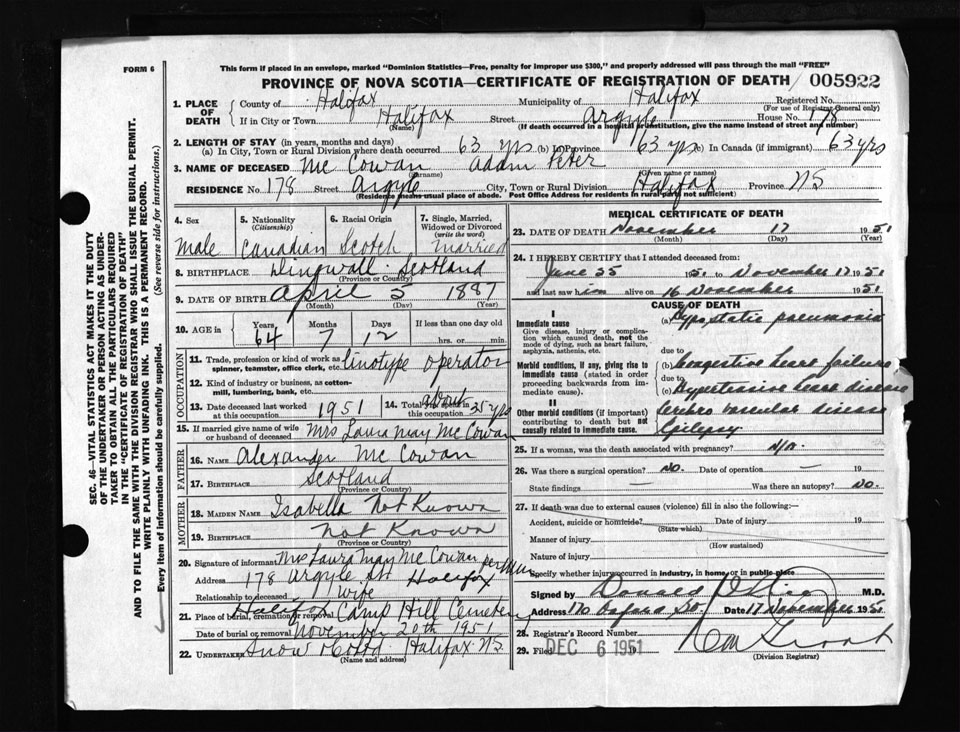 FORM 6
This form if placed in an envelope, marked "Dominion Statistics—Free, penalty for improper use $300," and properly addressed will pass through the mail "FREE"
PROVINCE OF NOVA SCOTIA—CERTIFICATE OF REGISTRATION OF DEATH 005922
1. PLACE OF DEATH County of Halifax Municipality of Halifax Registered No.
(For use of Registrar-General only)
If in City or Town Halifax Street Argyle House No. 178
(Name) (If death occurred in a hospital or institution, give the name instead of street and number)
2. LENGTH OF STAY (in years, months and days)
(a) In City, Town or Rural Division where death occurred 63 yrs (b) In Province 63 yrs (c) In Canada (if immigrant) 63 yrs
3. NAME OF DECEASED Mc Cowan Adam Peter
(Surname) (Given name or names)
RESIDENCE No. 178 Street Argyle City, Town or Rural Division Halifax Province NS
(Residence means usual place of abode. Post Office Address for residents in rural parts not sufficient)
4. Sex Male
5. Nationality (Citizenship) Canadian
6. Racial Origin Scotch
7. Single, Married, Widowed or Divorced (write the word) Married
8. BIRTHPLACE Dingwall Scotland
9. DATE OF BIRTH April 5 1887
(Month) (Day) (Year)
10. AGE in Years 64 Months 7 Days 12 If less than one day old hrs. or min.
OCCUPATION
11. Trade, profession or kind of work as spinner, teamster, office clerk, etc. linotype operator
12. Kind of industry or business, as cotton-mill, lumbering, bank, etc.
13. Date deceased last worked at this occupation 1951
14. Total years spent in this occupation about 25 yrs
15. If married give name of wife or husband of deceased Mrs Laura May Mc Cowan
FATHER
16. Name Alexander Mc Cowan
17. Birthplace Scotland
(Province or Country)
MOTHER
18. Maiden Name Isabella Not Known
19. Birthplace Not Known
(Province or Country)
20. Signature of informant Mrs Laura May Mc Cowan per
Address 178 Argyle St. Halifax
Relationship to deceased wife
21. Place of burial, cremation or removal Halifax Camp Hill Cemetery
Date of burial or removal November 20th 1951
22. UNDERTAKER Snow & Co Ltd Halifax NS
(Name and address)
MEDICAL CERTIFICATE OF DEATH
23. DATE OF DEATH November 17 1951
(Month) (Day) (Year)
24. I HEREBY CERTIFY that I attended deceased from:
June 1951 to November 17 1951
and last saw him alive on 16 November 1951
CAUSE OF DEATH
I
Immediate cause
Give disease, injury or complication which caused death, not the mode of dying, such as heart failure, asphyxia, asthenia, etc.
(a) Hypostatic pneumonia
due to
Morbid conditions, if any, giving rise to immediate cause (stated in order proceeding backwards from immediate cause)
(b) Congestive heart failure
due to
(c) Hypertensive heart disease
II
Other morbid conditions (if important) contributing to death but not causally related to immediate cause.
Cerebro vascular disease
Epilepsy
25. If a woman, was the death associated with pregnancy? N/A
26. Was there a surgical operation? No. Date of operation — 19
State findings — Was there an autopsy? No.
27. If death was due to external causes (violence) fill in also the following:—
Accident, suicide or homicide? Date of injury 19
(State which)
Manner of injury
(How sustained)
Nature of injury
Specify whether injury occurred in industry, in home, or in public place
Signed by M.D.
Address Date 17 November 1951
28. Registrar's Record Number
29. Filed DEC 6 1951
(Division Registrar)
SEC. 46—VITAL STATISTICS ACT MAKES IT THE DUTY OF THE UNDERTAKER OR PERSON ACTING AS UNDERTAKER TO OBTAIN ALL THE PARTICULARS REQUIRED IN THE "CERTIFICATE OF REGISTRATION OF DEATH" AND TO FILE THE SAME WITH THE DIVISION REGISTRAR WHO SHALL ISSUE THE BURIAL PERMIT.
WRITE PLAINLY WITH UNFADING INK. THIS IS A PERMANENT RECORD.
Every item of information should be carefully supplied. (See reverse side for instructions.)